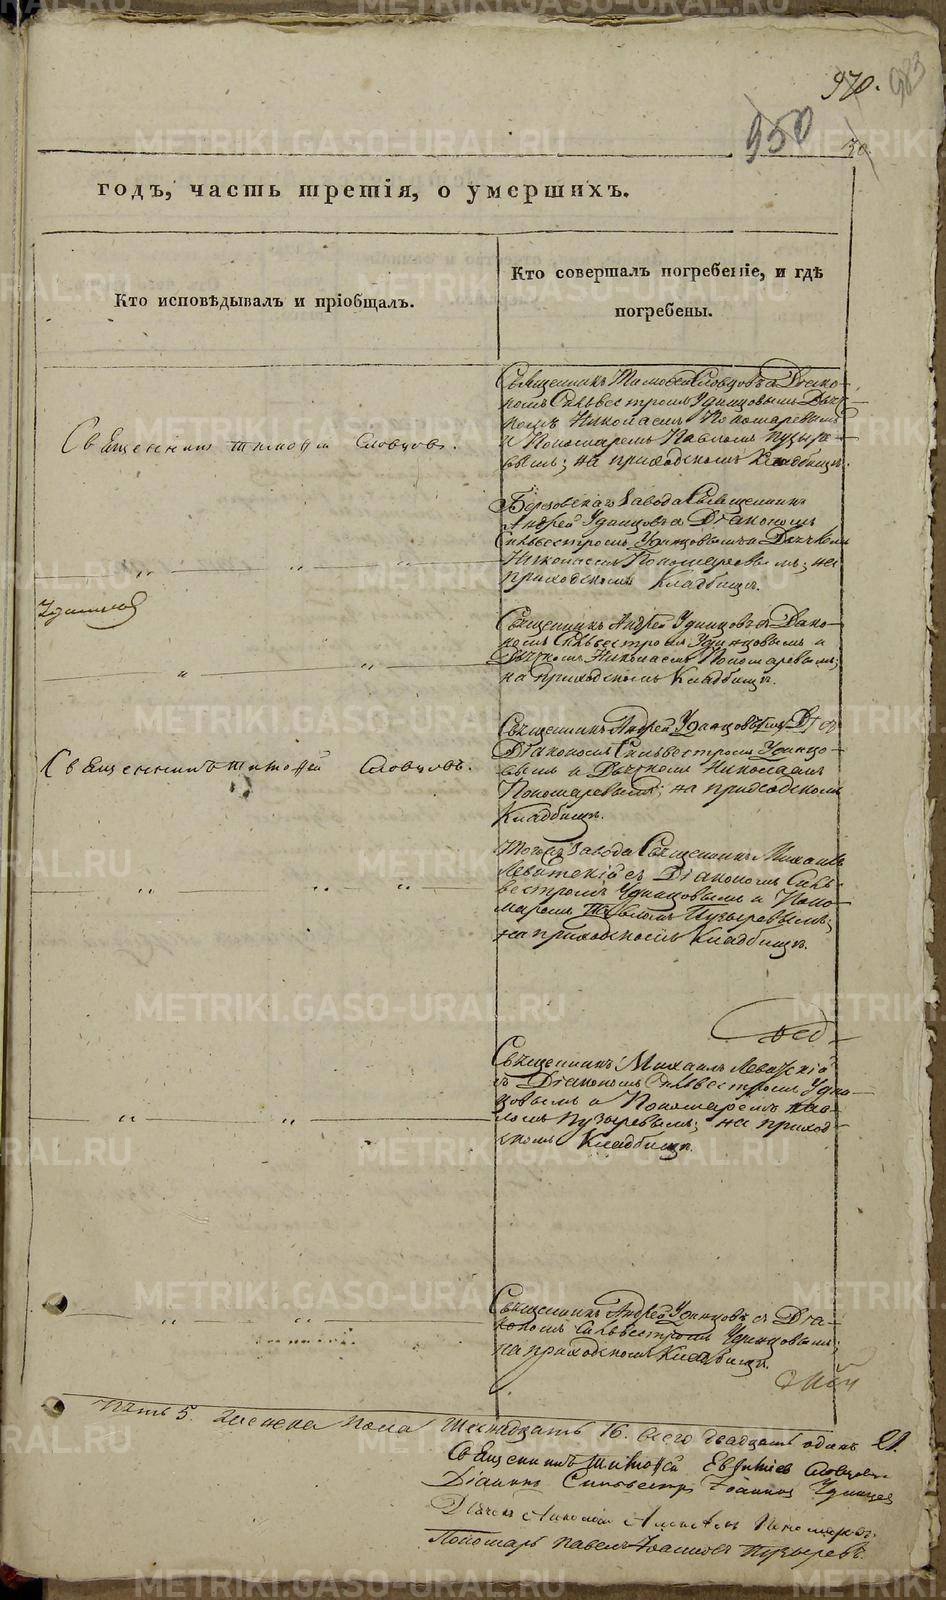 970.
983
950
годъ, часть третія, о умершихъ.
Кто исповѣдывалъ и пріобщалъ.
Кто совершалъ погребеніе, и гдѣ
погребены.
Священникъ Тимофей Словцовъ.
Священникъ Тимофей Словцовъ с Діако-
номъ Сильвестромъ Удинцовымъ Дьяч-
комъ Николаемъ Пономаревымъ
и Пономаремъ Павломъ Пузыре-
вымъ; на приходскомъ Кладбищѣ.
Березовскаго Завода Священникъ
Андрей Удинцовъ с Діакономъ
Сильвестромъ Удинцовымъ и Дьячкомъ
Николаемъ Пономаревымъ; на
приходскомъ Кладбищѣ.
Священникъ Андрей Удинцовъ с Діако-
номъ Сильвестромъ Удинцовымъ и
Дьячкомъ Николаемъ Пономаревымъ;
на приходскомъ Кладбищѣ.
Священникъ Тимофей Словцовъ.
Священникъ Андрей Удинцовъ
Діакономъ Сильвестромъ Удинцо-
вымъ и Дьячкомъ Николаемъ
Пономаревымъ; на приходскомъ
Кладбищѣ.
Тогожъ Завода Священникъ Михаилъ
Левитскій съ Діакономъ Силь-
вестромъ Удинцовымъ и Поно-
маремъ Павломъ Пузыревымъ;
на приходскомъ Кладбищѣ.
Священникъ Михаилъ Левитскій
съ Діакономъ Сильвестромъ Удин-
цовымъ и Пономаремъ Пав-
ломъ Пузыревымъ; на приход-
скомъ Кладбищѣ.
Священникъ Андрей Удинцовъ съ Діа-
кономъ Сильвестромъ Удинцовымъ;
на приходскомъ Кладбищѣ.
Пять 5. женска пола Шестнадцать 16. всего двадцать одинъ 21.
Священникъ Тимофей Евфимієв Словцовъ
Діаконъ Сильвестръ Іоанновъ Удинцев
Дьячекъ Николай Пономаревъ
Пономарь Павелъ Іоанновъ Пузыревъ.